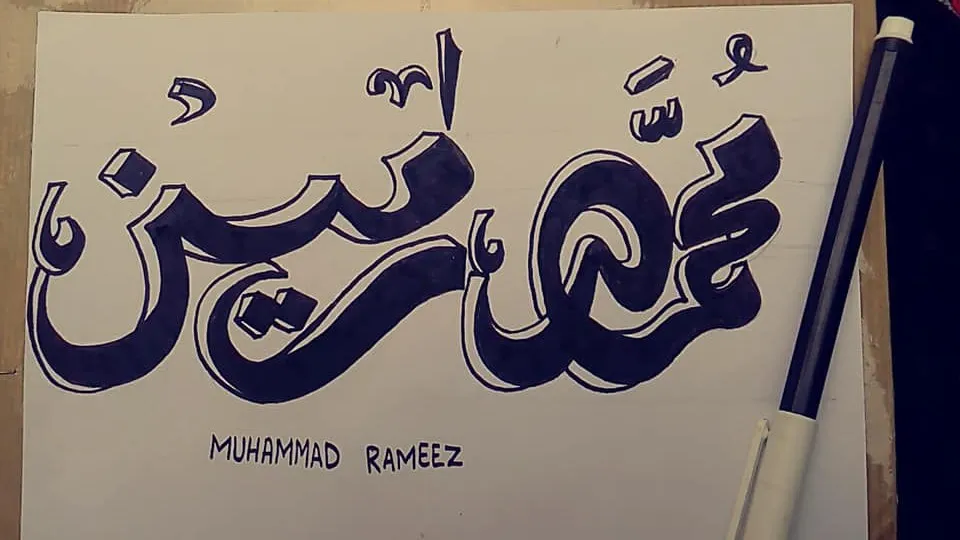 مُحمَّد رميز
MUHAMMAD RAMEEZ